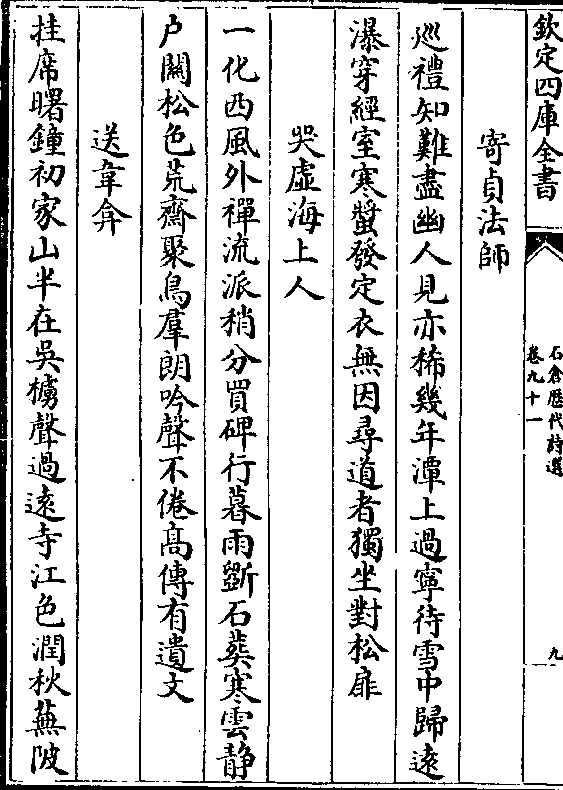 欽定四庫全書
石倉歷代詩選
卷九十一
九
寄貞法師
巡禮知難盡幽人見亦稀幾年潭上過寧待雪中歸遠
瀑穿經室寒螿發定衣無因尋道者獨坐對松扉
哭虛海上人
一化西風外禪流派稍分買碑行暮雨斵石葬寒雲静
户關松色荒齋聚鳥羣朗吟聲不倦髙傳有遺文
送韋弇
挂席曙鐘初家山半在吳艣聲過遠寺江色潤秋蕪陂